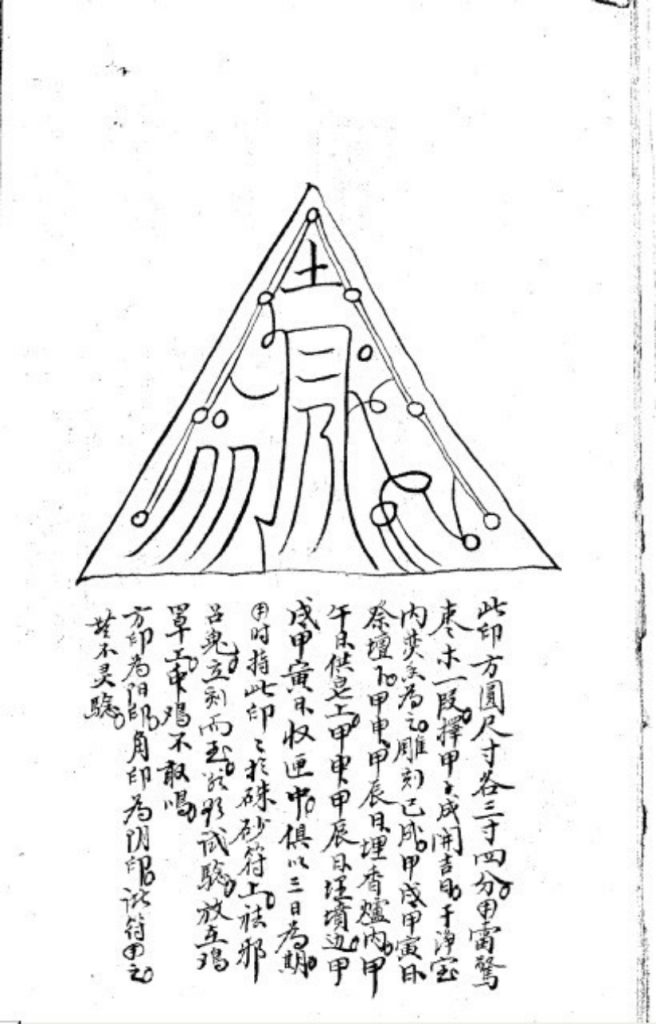 土
此印方圓尺寸各三寸四分用雷驚
枣木一段擇甲子成開吉日于净室
内焚香為之雕刻已成甲戌甲寅日
祭壇下甲申甲辰日埋香爐内甲
午日供皂上甲申甲辰日埋墳边甲
戌甲寅日收匣中俱以三日為期
用时持此印印於硃砂符上祛邪
吕鬼立刻而至於形试驗放在鸡
罩上申鸡不敢鳴
方印為阳印角印為阴印诸符用之
無不灵驗